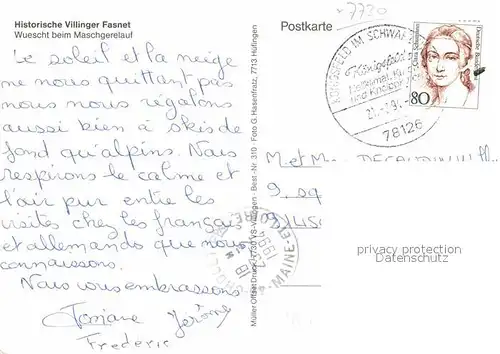 Historische Villinger Fasnet
Wuescht beim Maschgerelauf
Postkarte
Le soleil et la neige
ne nous quittant pas
nous nous régalons
aussi bien à skis de
fond qu'alpins. Nous
respirons le calme et
l'air pur entre les
visites chez les français
et allemands que nous
connaissons.
Nous vous embrassons
Josiane Jérôme
Frederic
Müller Offset Druck, 7730 VS-Villingen - Best.-Nr. 310 - Foto G. Hasenfratz, 7713 Hüfingen
KÖNIGSFELD IM SCHWARZW
Königsfeld
Heilklimat. Kur
und Kneipp
78126
Clara Schumann
Deutsche Bundespost
80
7730
M et Mme
9
privacy protection
Datenschutz
MAINE-ET-LOIRE